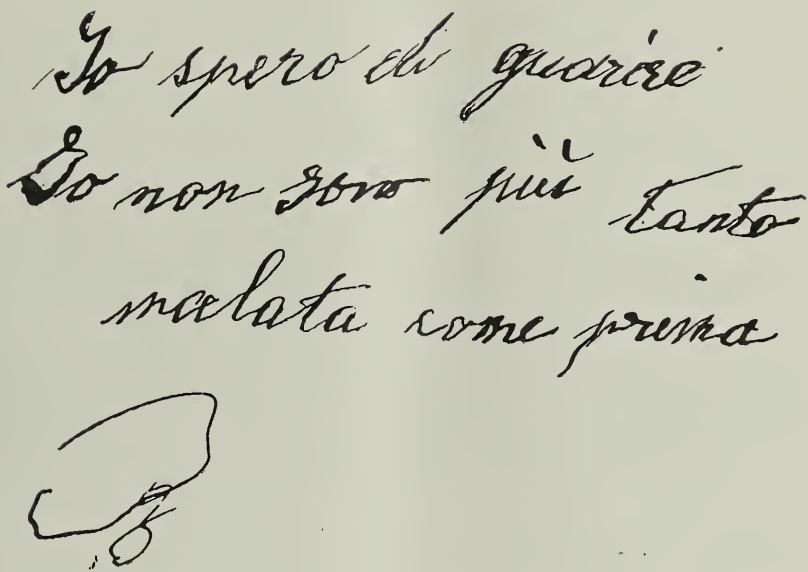 Io spero di guarire
Io non sono più tanto
malata come prima